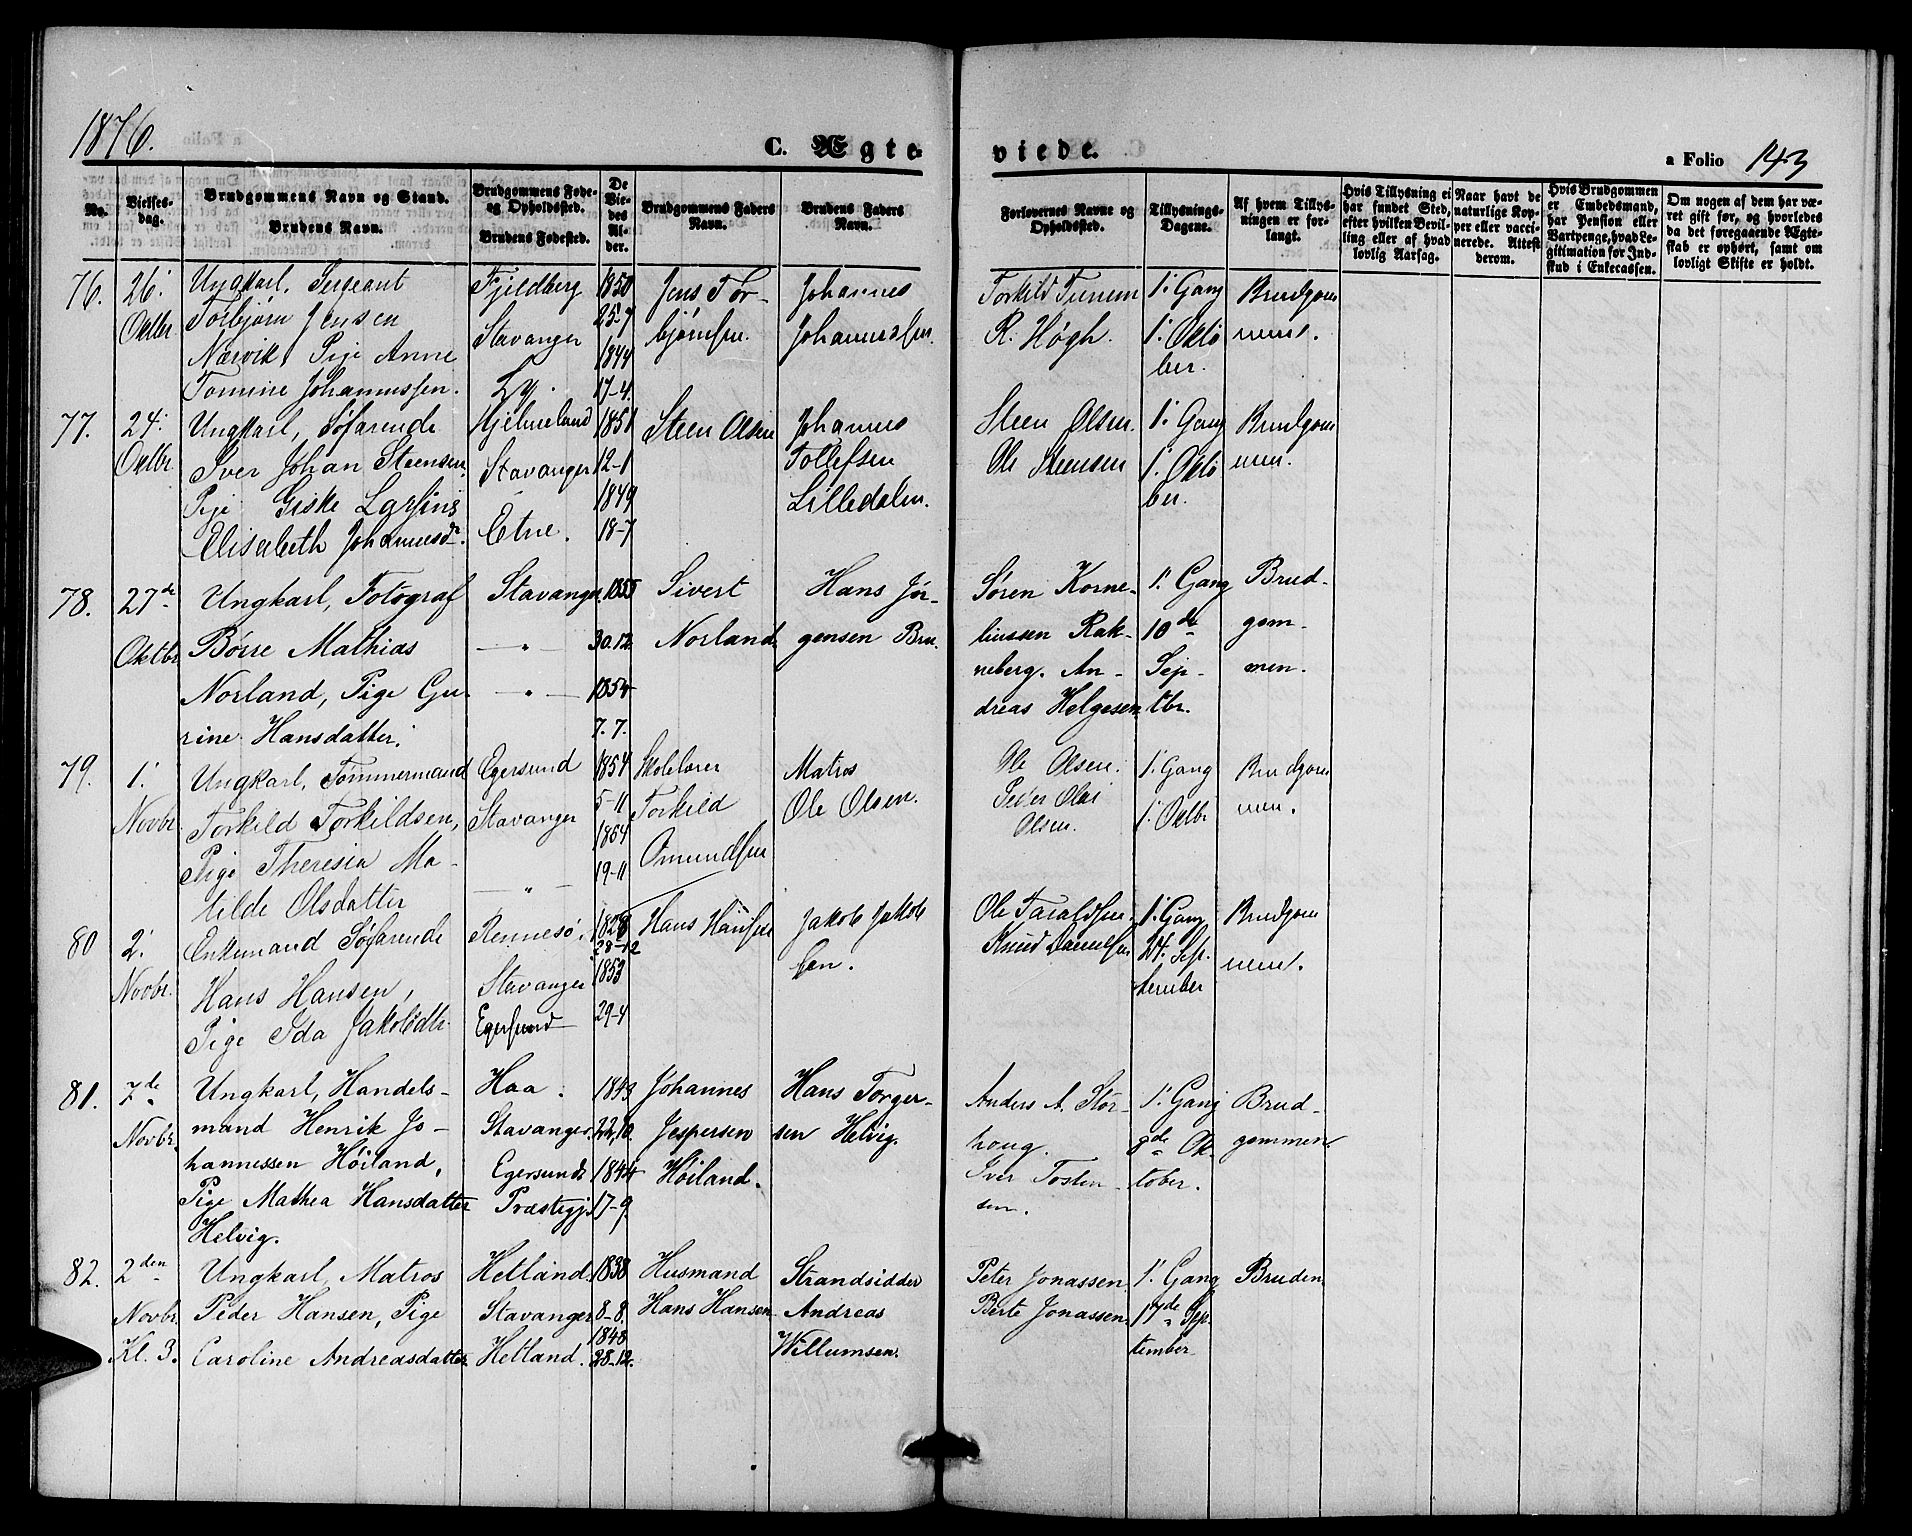 1876.
C. Ægte-
viede.
a Folio 143
No.
Vielses-
dag.
Brudgommens Navn og Stand.
Brudens Navn.
Brudgommens Føde-
og Opholdssted.
Brudens Fødested.
De
Vie-
des
Al-
der.
Brudgommens Faders
Navn.
Brudens Faders
Navn.
Forlovernes Navne og
Opholdssted.
Tillysnings-
Dagene.
Af hvem Tillys-
ningen er for-
langt.
Hvis Tillysning ei
har fundet Sted,
efter hvilken Bevil-
ling eller af hvad
lovlig Aarsag.
Naar havt de
naturlige Kop-
per eller vacci-
nerede. Attest
derom.
Hvis Brudgommen
er Embedsmand,
har Pension eller
Vartpenge, hvad Le-
gitimation for Ind-
skud i Enkecassen.
Om nogen af dem har væ-
ret gift før, og hvorledes
da det foregaaende Ægte-
skab er ophørt, samt om
lovligt Skifte er holdt.
76.
26.
Oktbr
Ungkarl, Sergeant
Torbjørn Jensen
Nærvik, Pige Anne
Tomine Johannessen.
Fjeldberg
Stavanger
1850
25-7
1844
17-4.
Jens Tor-
bjørnsen.
Johannes
Johannessen.
Torkild Tunem
R. Høgh.
1. Gang
1. Okto
ber.
Brudgom
men.
77.
24.
Oktbr
Ungkarl, Søfarende
Iver Johan Steensen,
Pige Giske Larsine
Elisabeth Johannesd.
Hjelmeland
Stavanger
Etne.
1851
12-1
1849
18-7
Steen Olsen
Johannes
Tollefsen
Lilledalen.
Steen Olsen.
Ole Steensen
1. Gang
1. Okto
ber.
Brudgom
men.
78.
27de
Oktbr
Ungkarl, Fotograf
Børre Mathias
Norland, Pige Gu-
rine Hansdatter.
Stavanger.
— " —
— " —
1855
30.12
1854
7. 7.
Sivert
Norland
Hans Jør-
gensen Bru.
Søren Korne-
liussen Rak-
neberg. An-
dreas Helgesen
1. Gang
10de
Sep-
tbr.
Brud-
gom-
men.
79.
1.
Novbr
Ungkarl, Tømmermand
Torkild Torkildsen,
Pige Theresia Ma-
tilde Olsdatter
Egersund
Stavanger
— " —
1854
5-11
1854
19-11
Skolelærer
Torkild
Omundsen
Matros
Ole Olsen.
Ole Olsen.
Peder Olai
Olsen.
1. Gang
1. Oktbr
Brudgom
men.
80
2.
Novbr.
Enkemand Søfarende
Hans Hansen,
Pige Ida Jakobdtr.
Rennesø.
Stavanger
Egersund
1828
28-12
1853
29-4
Hans Hansen
Jakob Jakob
sen.
Ole Taraldsen.
Knud Danielsen
1. Gang
24. Sep-
tember
Brudgom
men.
81.
7de
Novbr.
Ungkarl, Handels-
mand Henrik Jo-
hannessen Høiland,
Pige Mathea Hansdatter
Helvig.
Haa.
Stavanger.
Egersunds
Præstegj.
1843
22,10.
1844
17-9.
Johannes
Jespersen
Høiland.
Hans Torger-
sen Helvig.
Anders A. Stør-
houg.
Iver Tosten-
sen.
1. Gang
8de Ok-
tober.
Brud-
gommen.
82.
2den
Novbr.
Kl. 3.
Ungkarl, Matros
Peder Hansen, Pige
Caroline Andreasdatter
Hetland.
Stavanger
Hetland.
1838
8-8.
1848
28-12.
Husmand
Hans Hansen
Strandsidder
Andreas
Willumsen.
Peter Jonassen.
Berte Jonassen.
1. Gang
17de Sep-
tember
Bruden